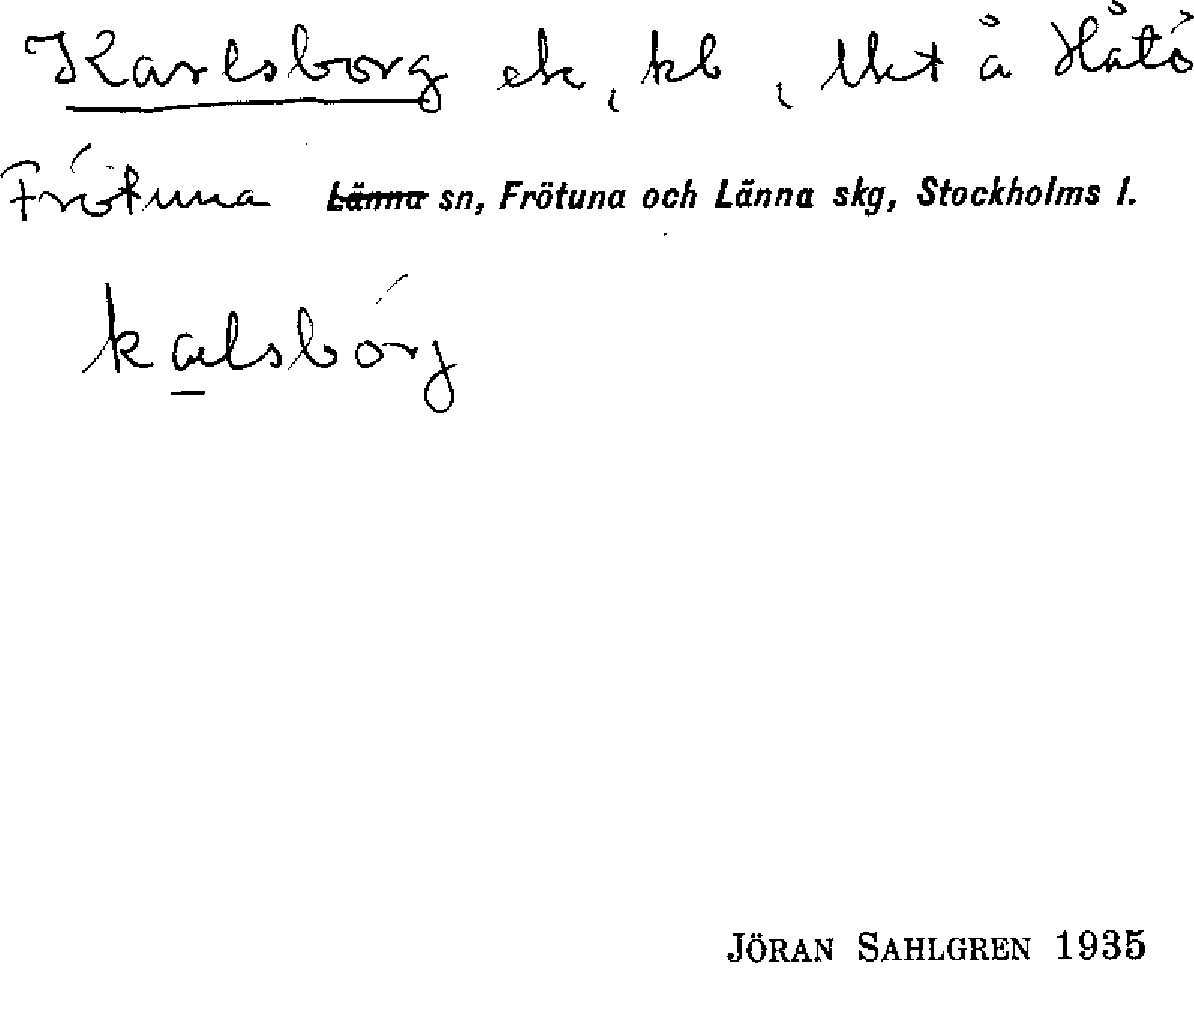 Karlsborg ek, kb, Ukt å Håtö
Frötuna Länna sn, Frötuna och Länna skg, Stockholms l.
kalsbórg
JÖRAN SAHLGREN 1935